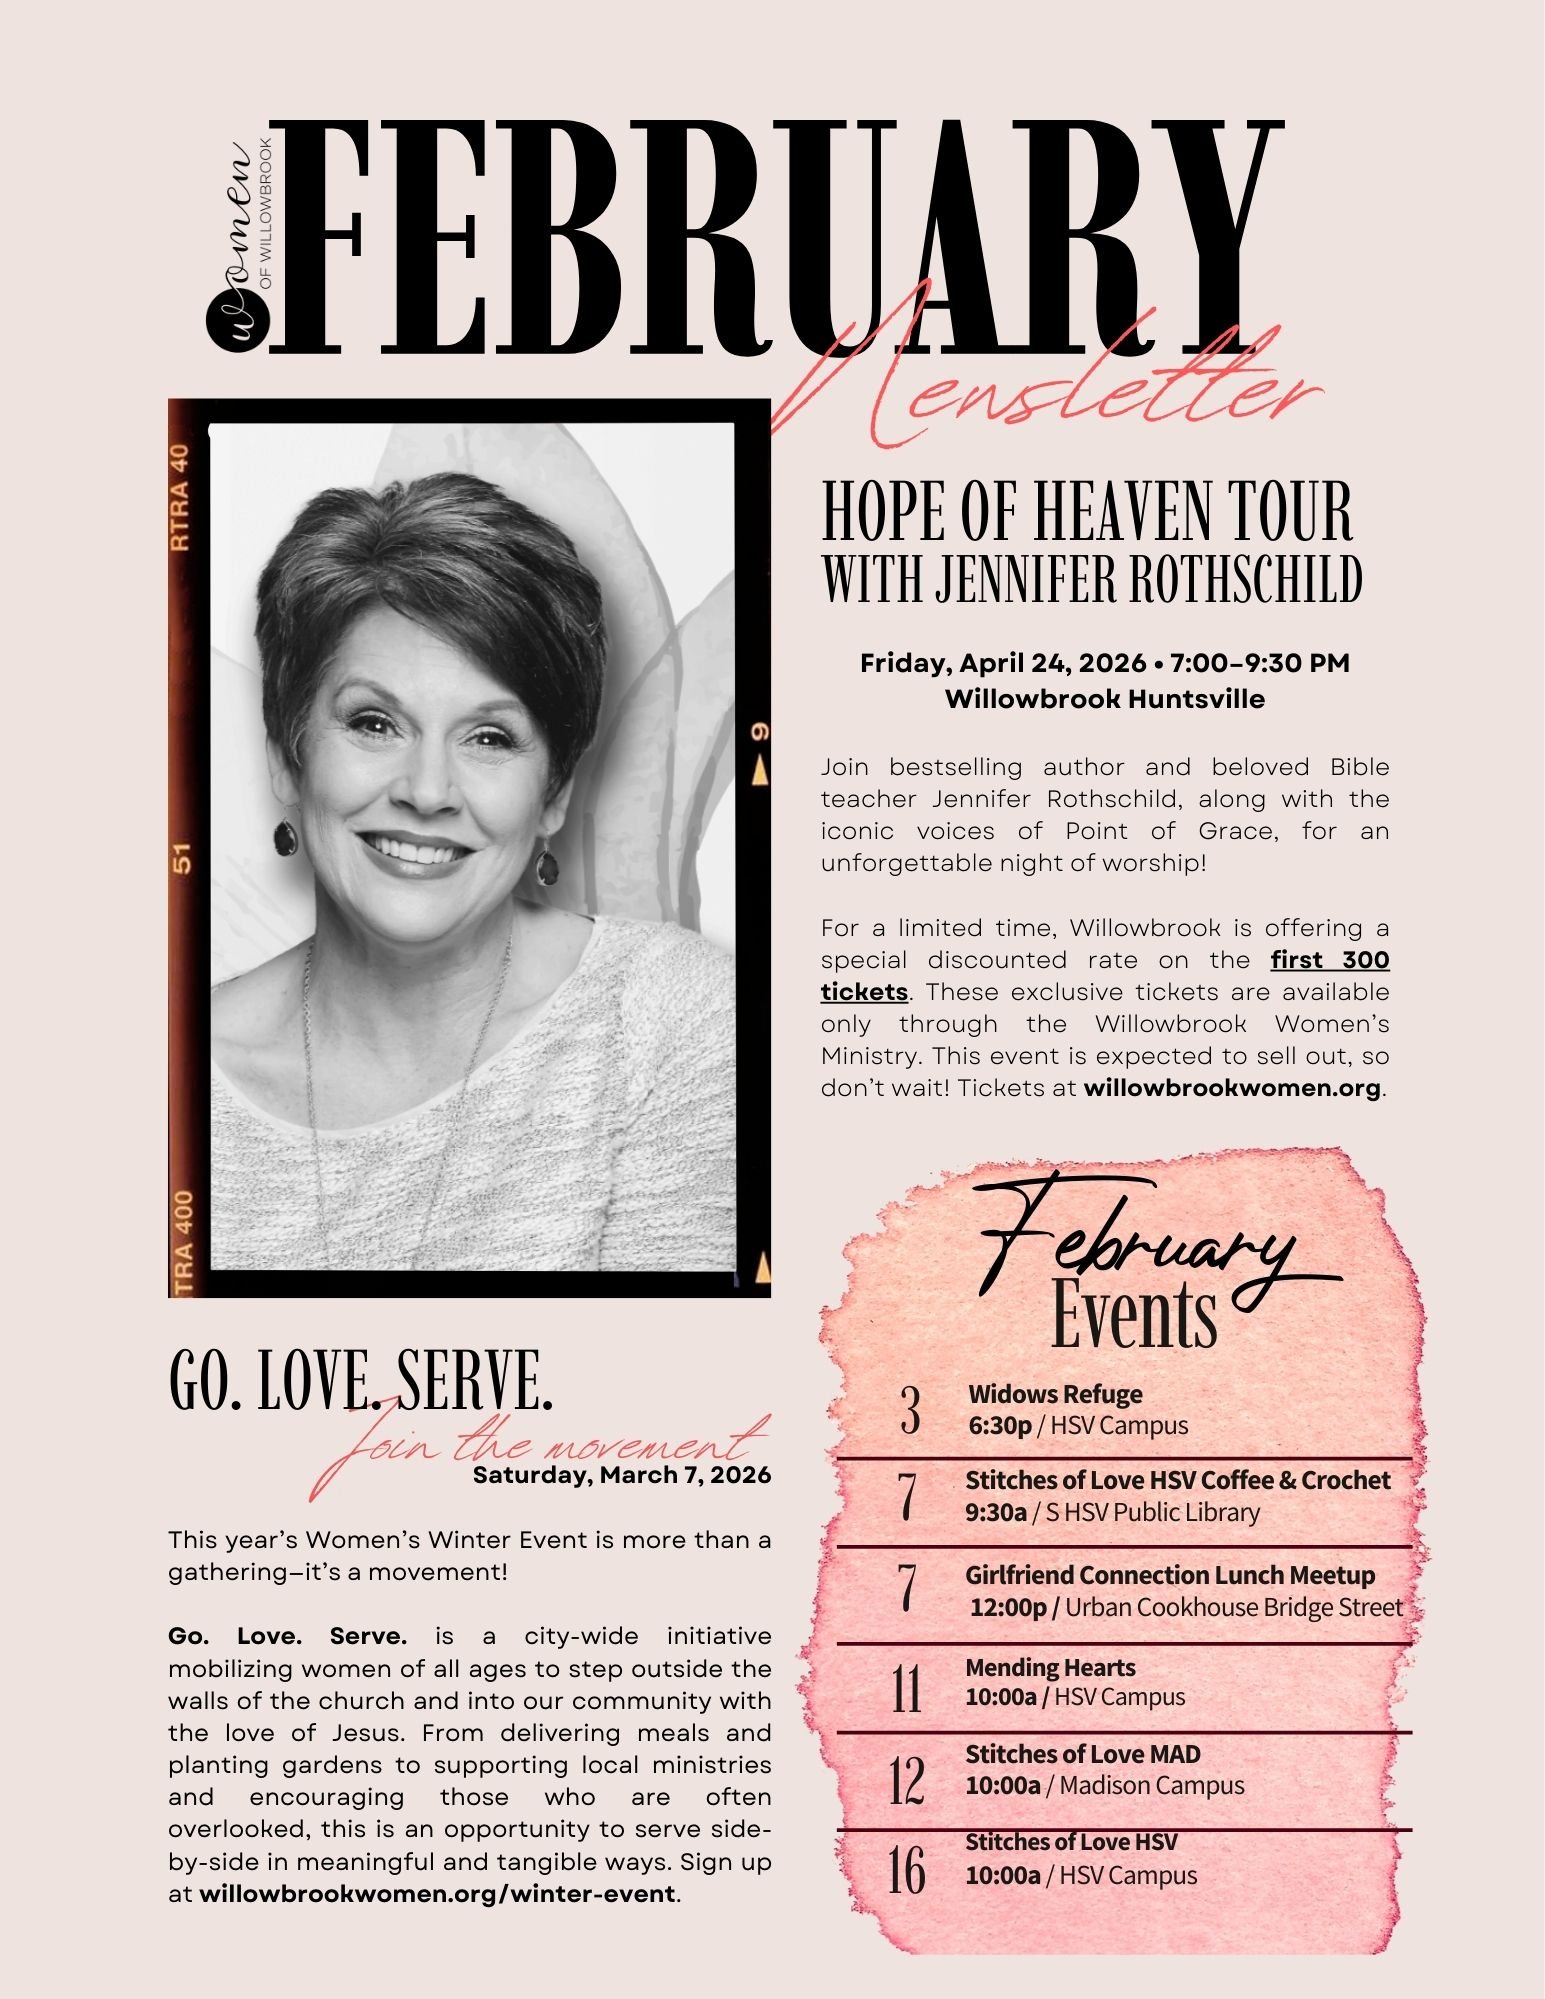 women
OF WILLOWBROOK
FEBRUARY
Newsletter
RTRA 40
51
TRA 400
9
HOPE OF HEAVEN TOUR
WITH JENNIFER ROTHSCHILD
Friday, April 24, 2026 • 7:00–9:30 PM
Willowbrook Huntsville
Join bestselling author and beloved Bible
teacher Jennifer Rothschild, along with the
iconic voices of Point of Grace, for an
unforgettable night of worship!
For a limited time, Willowbrook is offering a
special discounted rate on the first 300
tickets. These exclusive tickets are available
only through the Willowbrook Women's
Ministry. This event is expected to sell out, so
don't wait! Tickets at willowbrookwomen.org.
GO. LOVE. SERVE.
Join the movement
Saturday, March 7, 2026
This year's Women's Winter Event is more than a
gathering—it's a movement!
Go. Love. Serve. is a city-wide initiative
mobilizing women of all ages to step outside the
walls of the church and into our community with
the love of Jesus. From delivering meals and
planting gardens to supporting local ministries
and encouraging those who are often
overlooked, this is an opportunity to serve side-
by-side in meaningful and tangible ways. Sign up
at willowbrookwomen.org/winter-event.
February
Events
3
Widows Refuge
6:30p / HSV Campus
7
Stitches of Love HSV Coffee & Crochet
9:30a / S HSV Public Library
7
Girlfriend Connection Lunch Meetup
12:00p / Urban Cookhouse Bridge Street
11
Mending Hearts
10:00a / HSV Campus
12
Stitches of Love MAD
10:00a / Madison Campus
16
Stitches of Love HSV
10:00a / HSV Campus